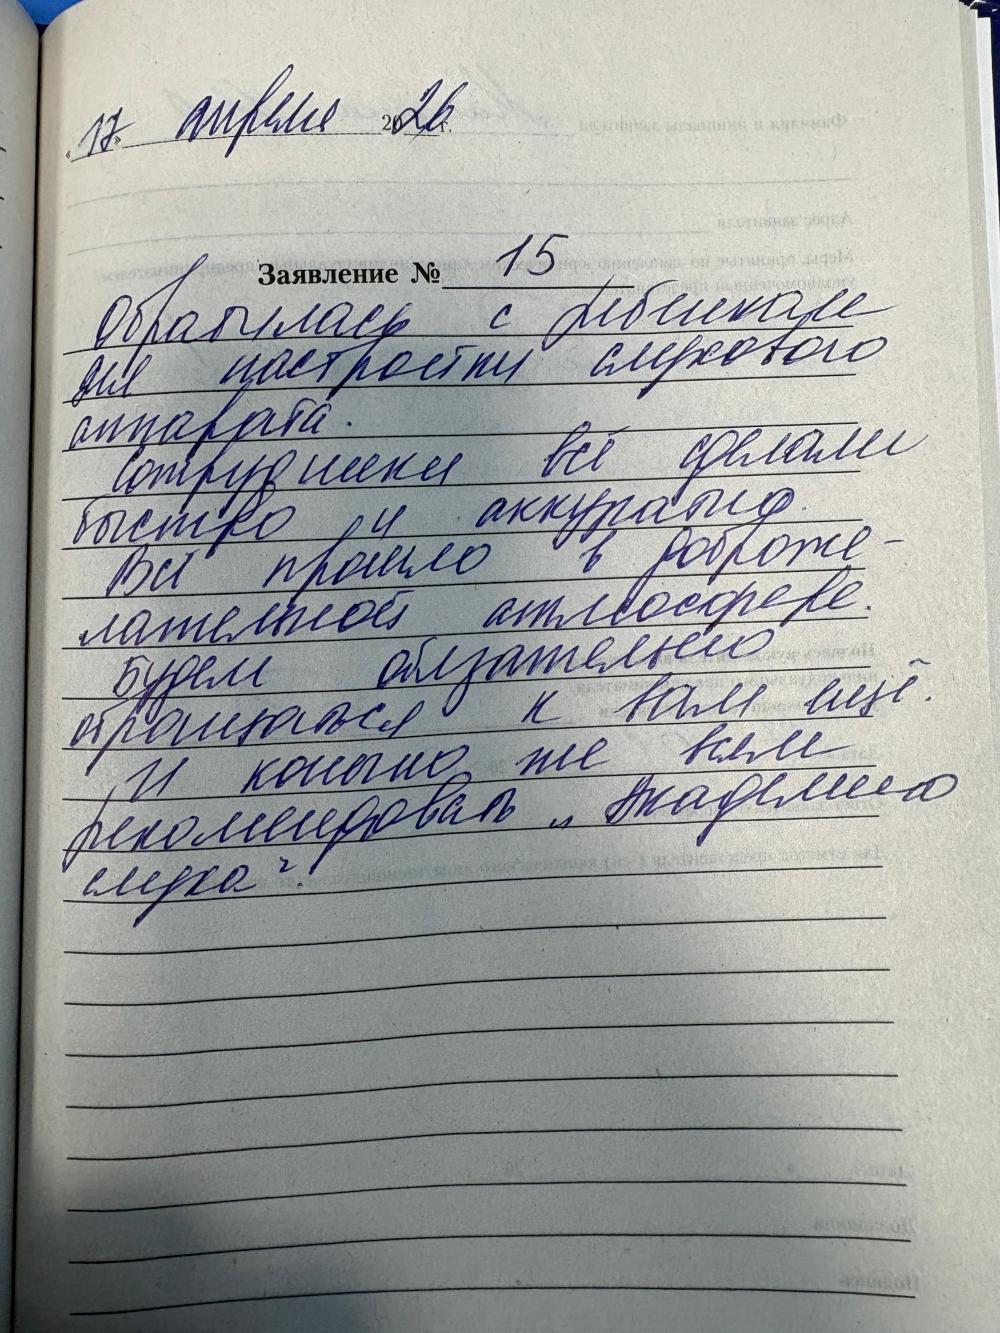 «17» апреля 2026 г.
Заявление № 15
Обратилась с ребенком
для настройки слухового
аппарата.
Сотрудники всё сделали
быстро и аккуратно.
Всё прошло в доброже-
лательной атмосфере.
Будем обязательно
обращаться к вам ещё.
И конечно же всем
рекомендовать „Академию
слуха".